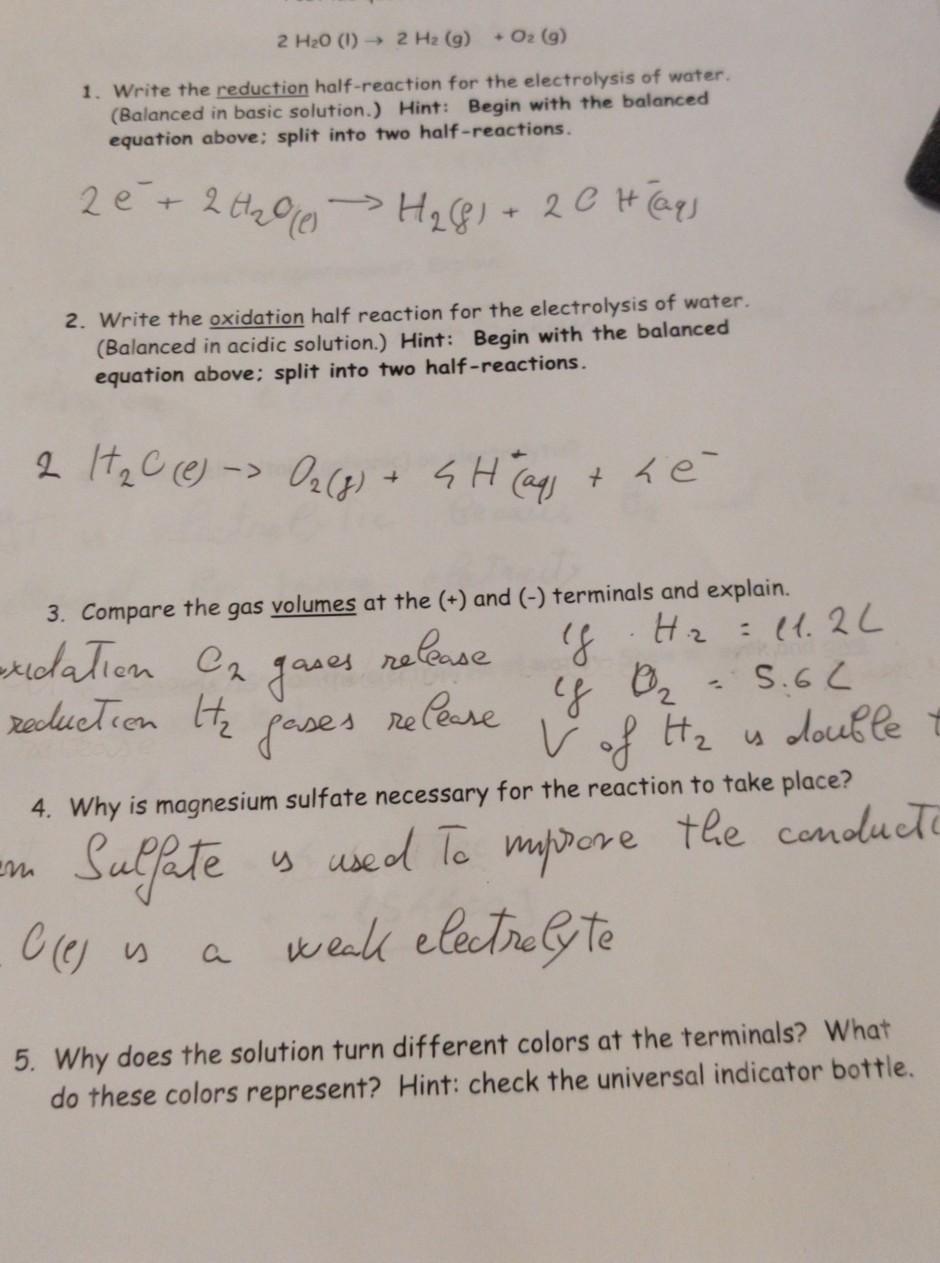 2 H₂O (l) → 2 H₂ (g) + O₂ (g)
1. Write the reduction half-reaction for the electrolysis of water.
(Balanced in basic solution.) Hint: Begin with the balanced
equation above; split into two half-reactions.
2 e⁻ + 2 H₂O(l) → H₂(g) + 2 OH⁻(aq)
2. Write the oxidation half reaction for the electrolysis of water.
(Balanced in acidic solution.) Hint: Begin with the balanced
equation above; split into two half-reactions.
2 H₂O(l) -> O₂(g) + 4 H⁺(aq) + 4 e⁻
3. Compare the gas volumes at the (+) and (-) terminals and explain.
oxidation O₂ gases release if H₂ = 11.2 L
reduction H₂ gases release if O₂ = 5.6 L
V of H₂ is double
4. Why is magnesium sulfate necessary for the reaction to take place?
Sulfate is used To improve the conducti
O(l) is a weak electrolyte
5. Why does the solution turn different colors at the terminals? What
do these colors represent? Hint: check the universal indicator bottle.